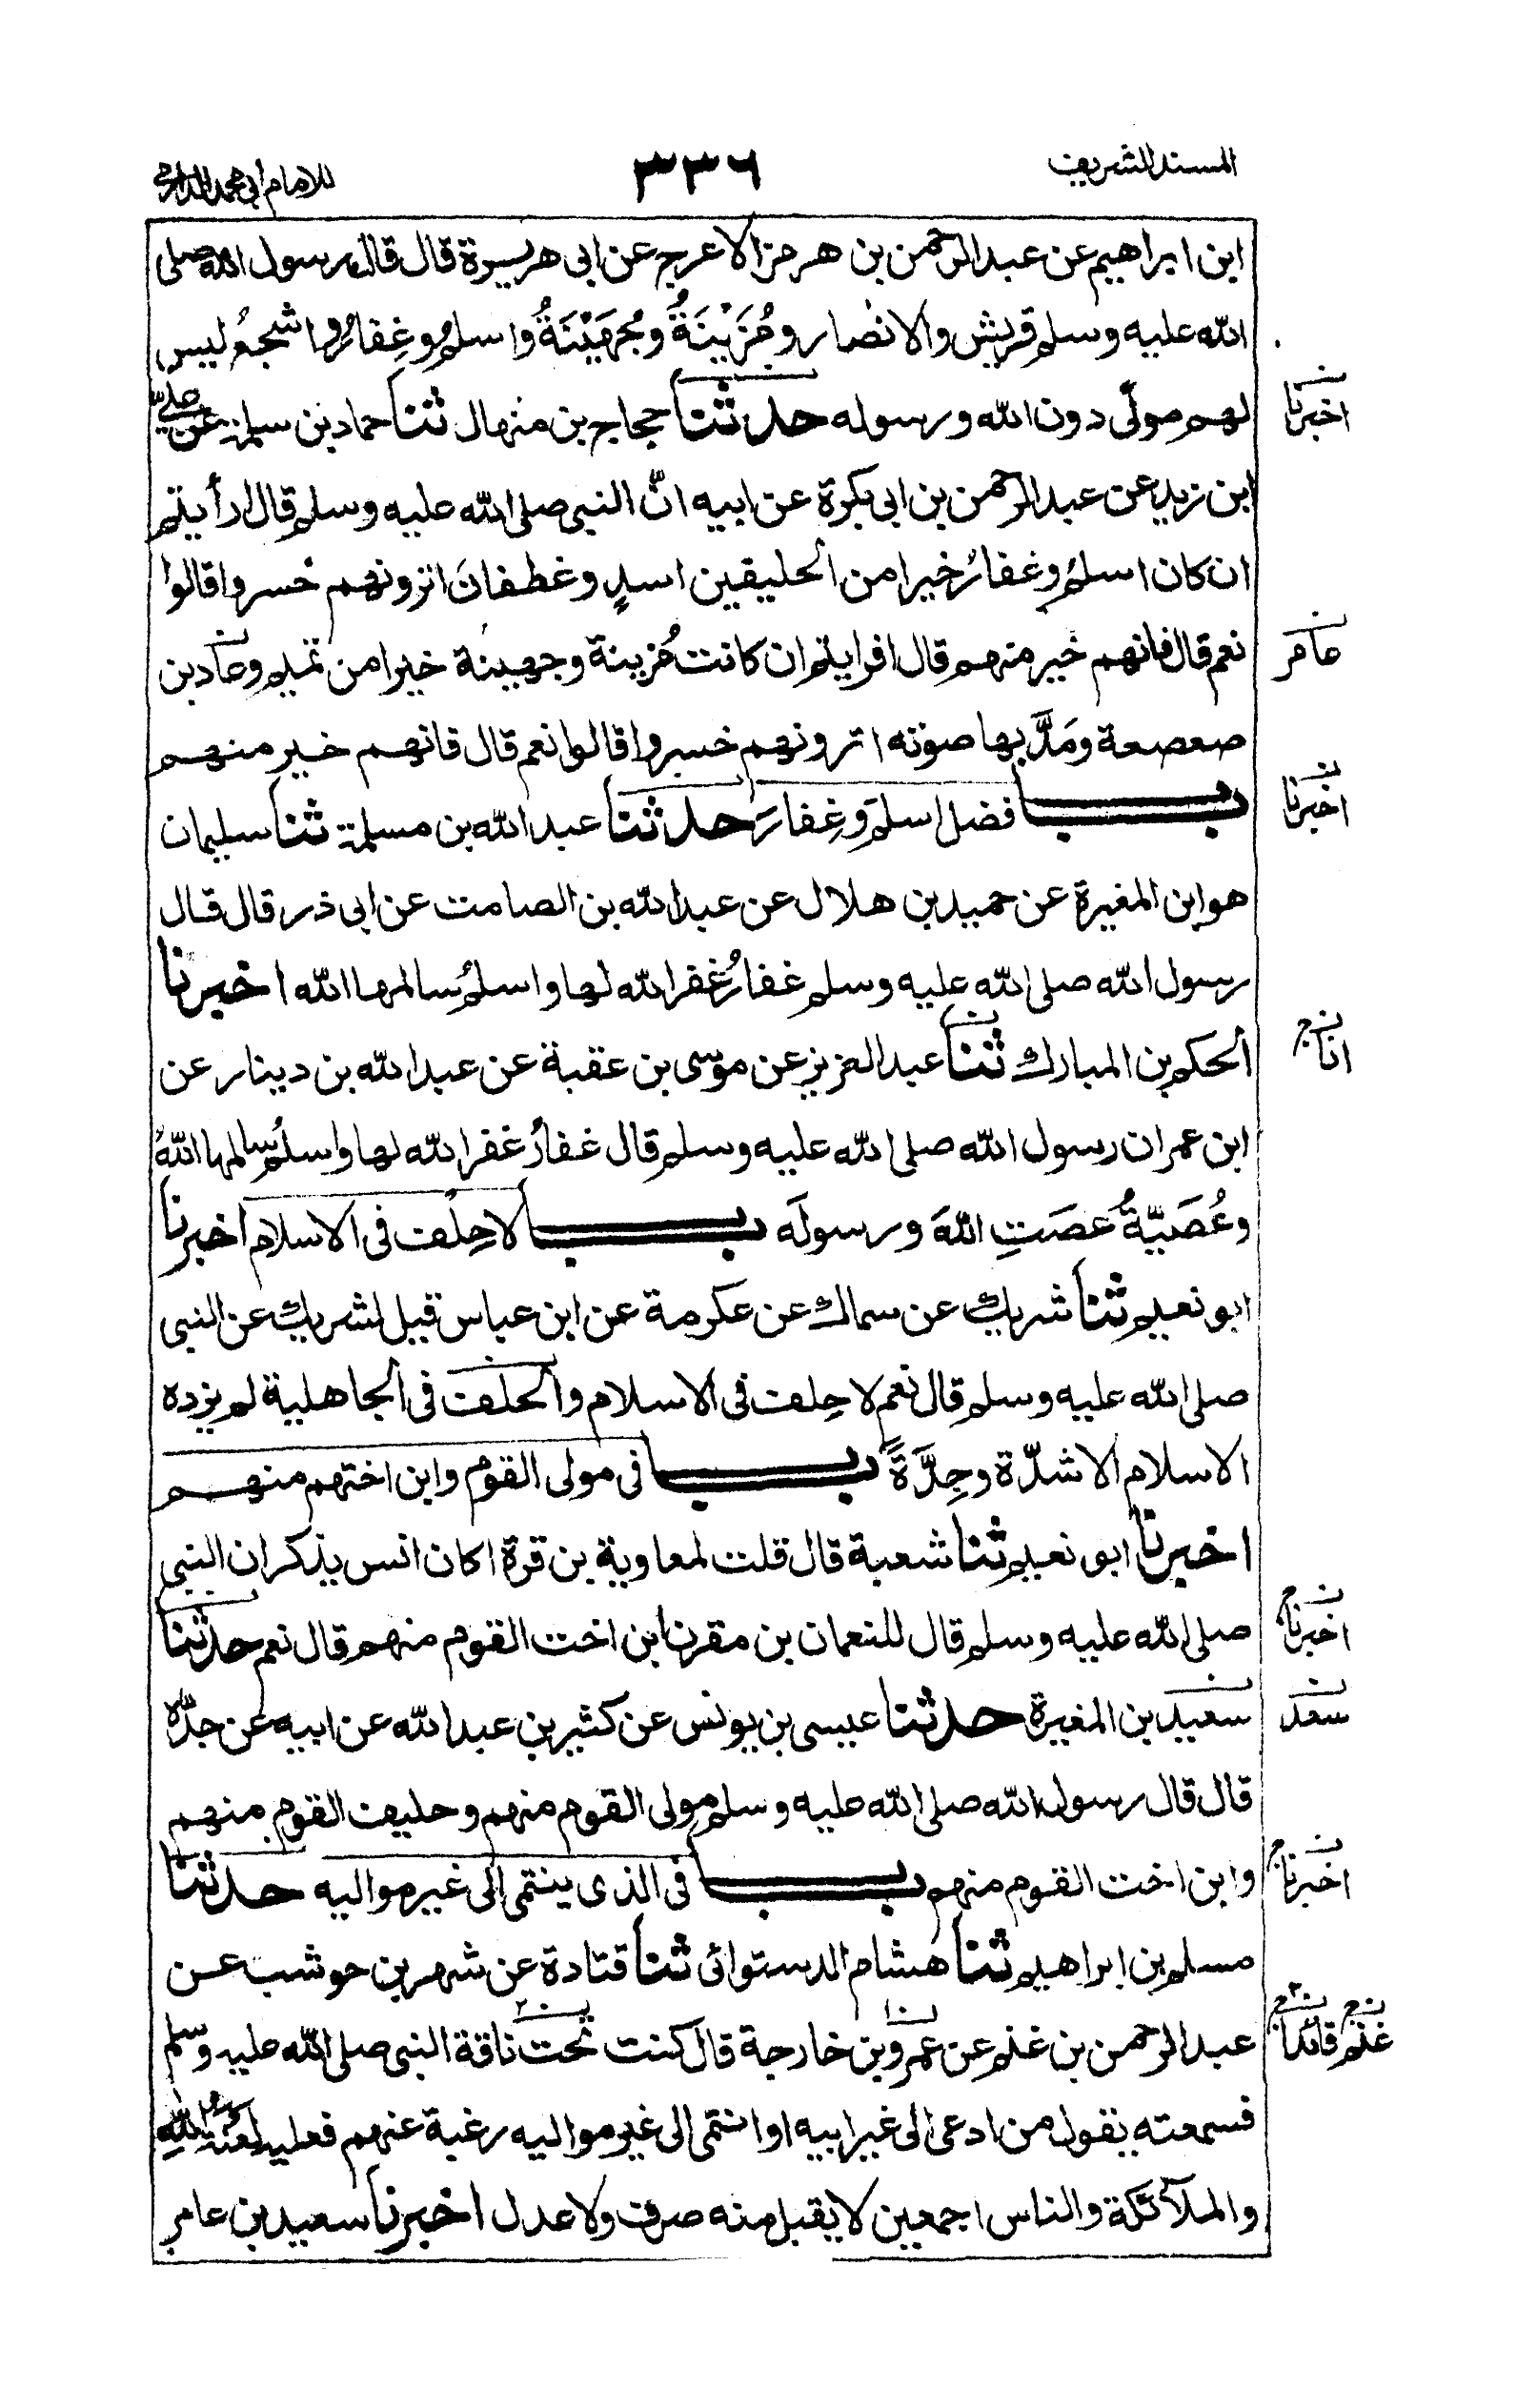 المسند الشريف
٣٣٦
للامام ابى محمد الدارمى
ابن ابراهيم عن عبد الرحمن بن هرمز الاعرج عن ابى هريرة قال قال رسول الله صلى
الله عليه وسلم قريش والانصار ومُزَيْنَةُ وجُهَيْنَةُ واسلمُ وغِفارُ واشجعُ ليس
لهم مولًى دون الله ورسوله حدثنا حجاج بن منهال ثنا حماد بن سلمة عن على
اخبرنا
ابن زيد عن عبد الرحمن بن ابى بكرة عن ابيه انّ النبى صلى الله عليه وسلم قال ارأيتم
ان كان اسلمُ وغفارُ خيرا من الحليفين اسدٍ وغطفانَ اترونهم خسروا قالوا
نعم قال فانهم خير منهم قال افرايتم ان كانت مُزينة وجهينة خيرا من تميم وعاد بن
عامر
صعصعة ومَدَّ بها صوته اترونهم خسروا قالوا نعم قال فانهم خير منهم
باب فضل اسلمَ وغِفارَ حدثنا عبد الله بن مسلمة ثنا سليمان
اخبرنا
هو ابن المغيرة عن حميد بن هلال عن عبد الله بن الصامت عن ابى ذر قال قال
رسول الله صلى الله عليه وسلم غفارُ غفر الله لها واسلمُ سالمها الله اخبرنا
الحكم بن المبارك ثنا عبد العزيز عن موسى بن عقبة عن عبد الله بن دينار عن
انا
ابن عمر ان رسول الله صلى الله عليه وسلم قال غفارُ غفر الله لها واسلمُ سالمها اللهُ
وعُصَيّةُ عصَتِ اللهَ ورسولَه باب لا حِلف فى الاسلام اخبرنا
ابو نعيم ثنا شريك عن سماك عن عكرمة عن ابن عباس قيل لشريك عن النبى
صلى الله عليه وسلم قال نعم لا حِلف فى الاسلام والحلف فى الجاهلية لم يزده
الاسلام الا شدّة وجِدَّةً باب فى مولى القوم وابن اختهم منهم
اخبرنا ابو نعيم ثنا شعبة قال قلت لمعاوية بن قرة اكان انس يذكر ان النبى
صلى الله عليه وسلم قال للنعمان بن مقرن ابن اخت القوم منهم قال نعم حدثنا
اخبرنا
سعيد بن المغيرة حدثنا عيسى بن يونس عن كثير بن عبد الله عن ابيه عن جدّه
سعد
قال قال رسول الله صلى الله عليه وسلم مولى القوم منهم وحليف القوم منهم
وابن اخت القوم منهم باب فى الذى ينتمى الى غير مواليه حدثنا
اخبرنا
مسلم بن ابراهيم ثنا هشام الدستوائى ثنا قتادة عن شهر بن حوشب عن
عبد الرحمن بن غنم عن عمرو بن خارجة قال كنت تحت ناقة النبى صلى الله عليه وسلم
غنم قائدا
فسمعته يقول من ادعى الى غير ابيه او انتمى الى غير مواليه رغبة عنهم فعليه لعنة اللهِ
والملآئكة والناس اجمعين لا يقبل منه صرف ولا عدل اخبرنا سعيد بن عامر